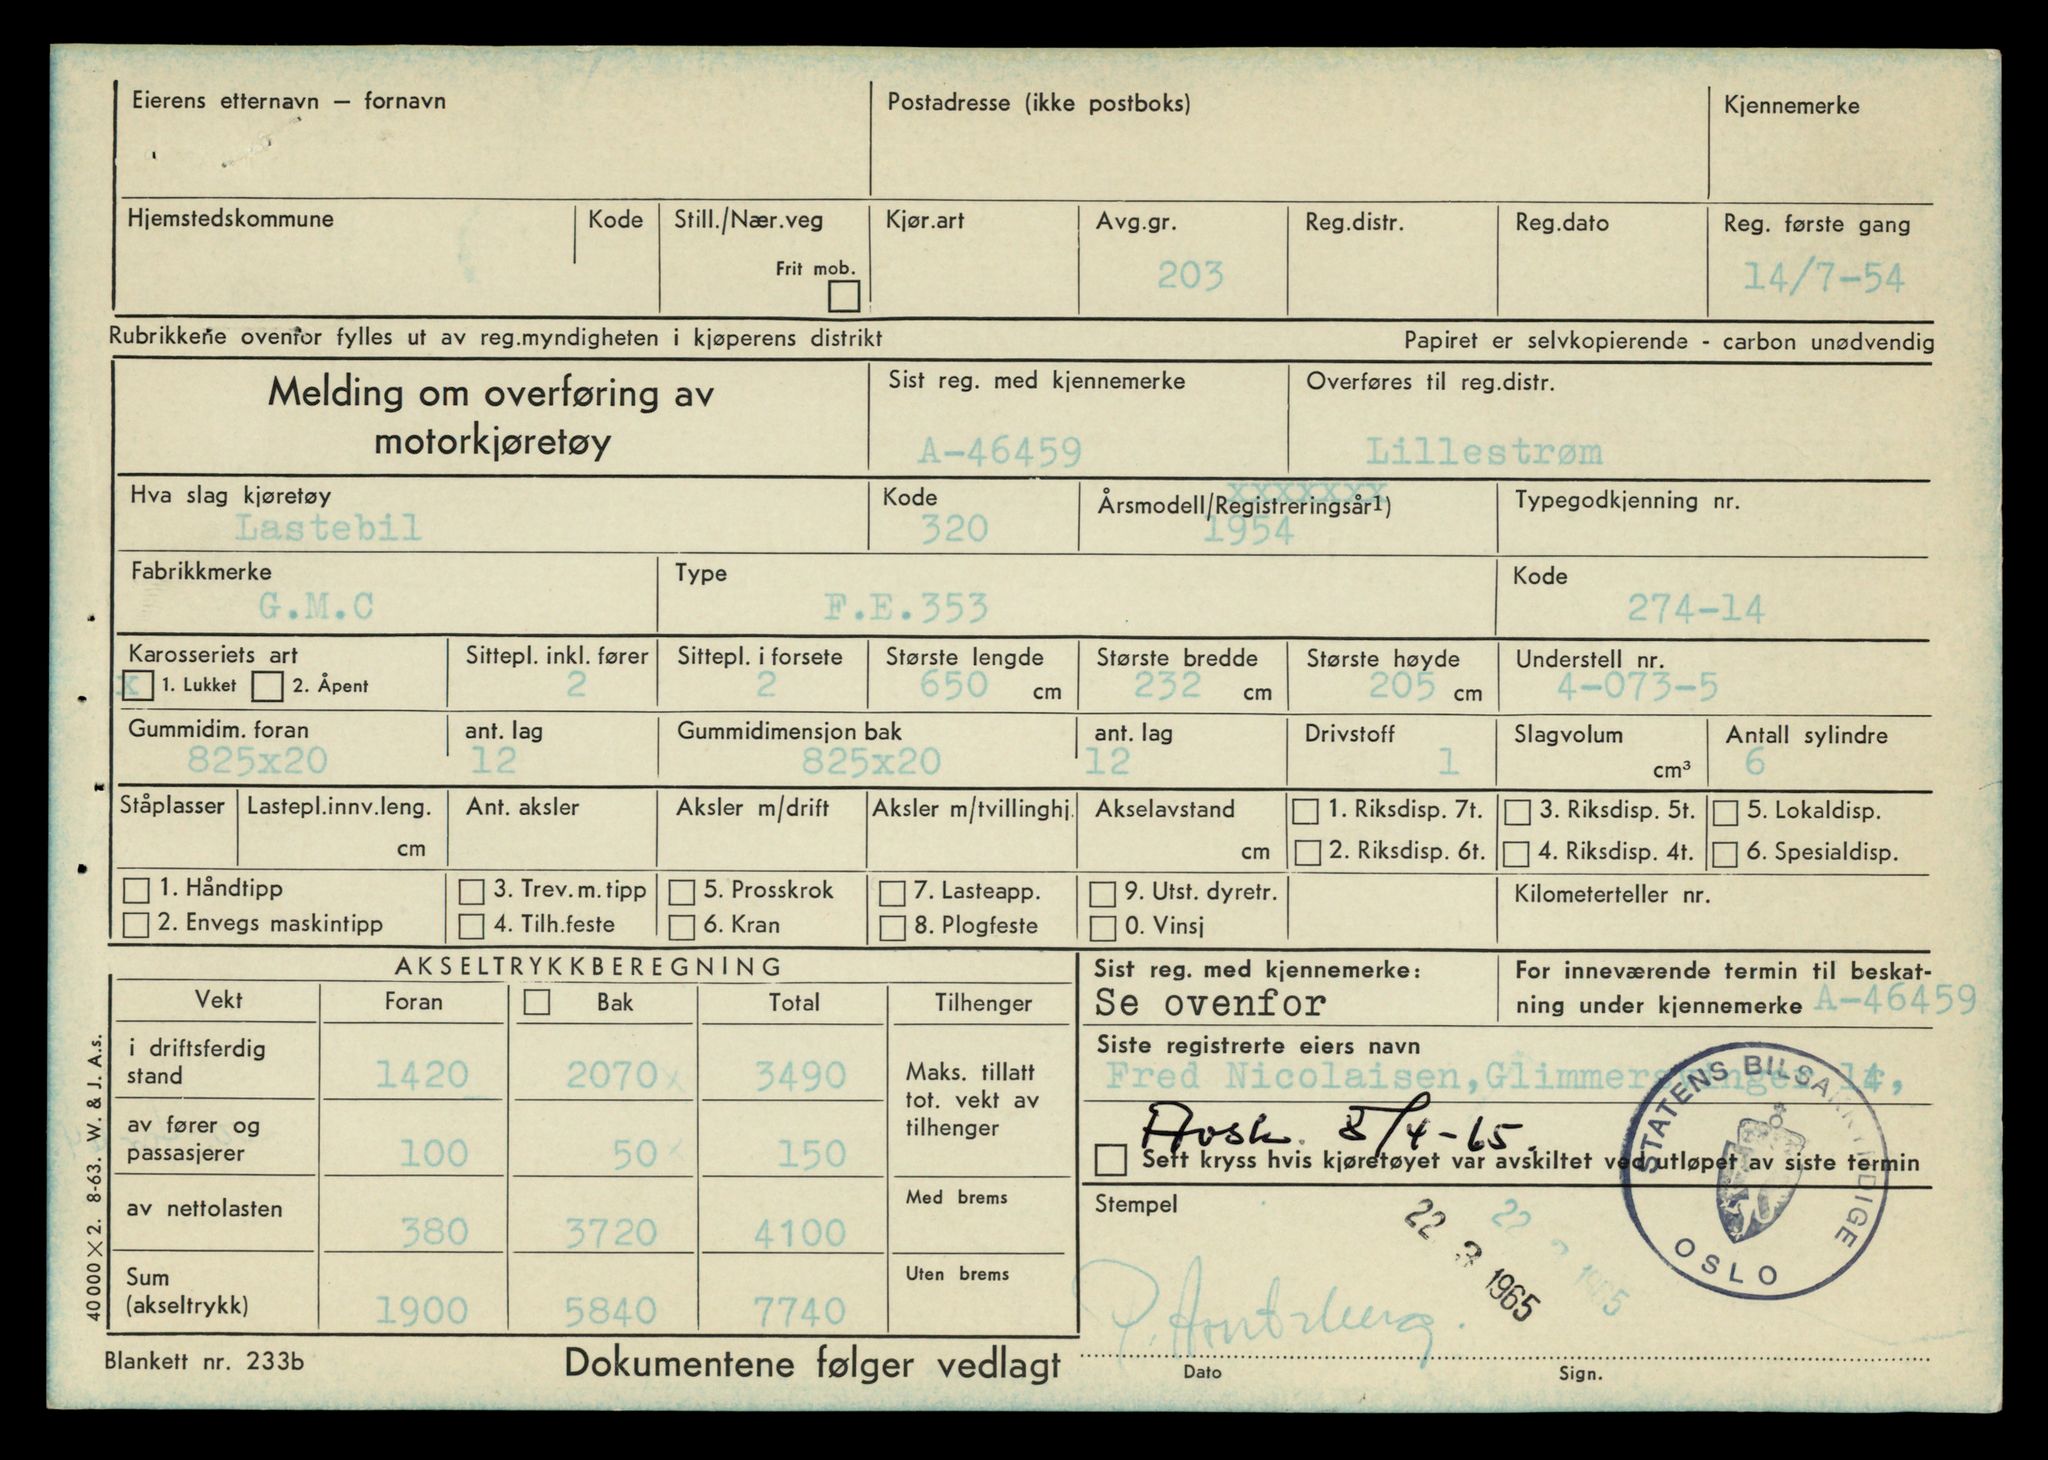 Eierens etternavn – fornavn
Postadresse (ikke postboks)
Kjennemerke
Hjemstedskommune
Kode
Still./Nær.veg
Frit mob.
Kjør.art
Avg.gr.
203
Reg.distr.
Reg.dato
Reg. første gang
14/7-54
Rubrikkene ovenfor fylles ut av reg.myndigheten i kjøperens distrikt
Papiret er selvkopierende - carbon unødvendig
Melding om overføring av
motorkjøretøy
Sist reg. med kjennemerke
A-46459
Overføres til reg.distr.
Lillestrøm
Hva slag kjøretøy
Lastebil
Kode
320
xxxxxxx
Årsmodell/Registreringsår1)
1954
Typegodkjenning nr.
Fabrikkmerke
G.M.C
Type
F.E.353
Kode
274-14
Karosseriets art
x 1. Lukket 2. Åpent
Sittepl. inkl. fører
2
Sittepl. i forsete
2
Største lengde
650 cm
Største bredde
232 cm
Største høyde
205 cm
Understell nr.
4-073-5
Gummidim. foran
825x20
ant. lag
12
Gummidimensjon bak
825x20
ant. lag
12
Drivstoff
1
Slagvolum
cm³
Antall sylindre
6
Ståplasser
Lastepl.innv.leng.
cm
Ant. aksler
Aksler m/drift
Aksler m/tvillinghj.
Akselavstand
cm
1. Riksdisp. 7t.
2. Riksdisp. 6t.
3. Riksdisp. 5t.
4. Riksdisp. 4t.
5. Lokaldisp.
6. Spesialdisp.
1. Håndtipp
2. Envegs maskintipp
3. Trev.m.tipp
4. Tilh.feste
5. Prosskrok
6. Kran
7. Lasteapp.
8. Plogfeste
9. Utst. dyretr.
0. Vinsj
Kilometerteller nr.
AKSELTRYKKBEREGNING
Vekt Foran Bak Total Tilhenger
i driftsferdig
stand
1420 2070 x 3490
Maks. tillatt
tot. vekt av
tilhenger
av fører og
passasjerer
100 50 x 150
av nettolasten
380 3720 4100
Med brems
Sum
(akseltrykk)
1900 5840 7740
Uten brems
Sist reg. med kjennemerke:
Se ovenfor
For inneværende termin til beskat-
ning under kjennemerke A-46459
Siste registrerte eiers navn
Fred Nicolaisen,
Avsk. 5/4-65.
Sett kryss hvis kjøretøyet var avskiltet ved utløpet av siste termin
Stempel
22 3 1965
22 3 1965
STATENS BILSAKKYNDIGE
OSLO
Dato
Sign.
40 000 x 2. 8-63. W. & J. A.s.
Blankett nr. 233b
Dokumentene følger vedlagt